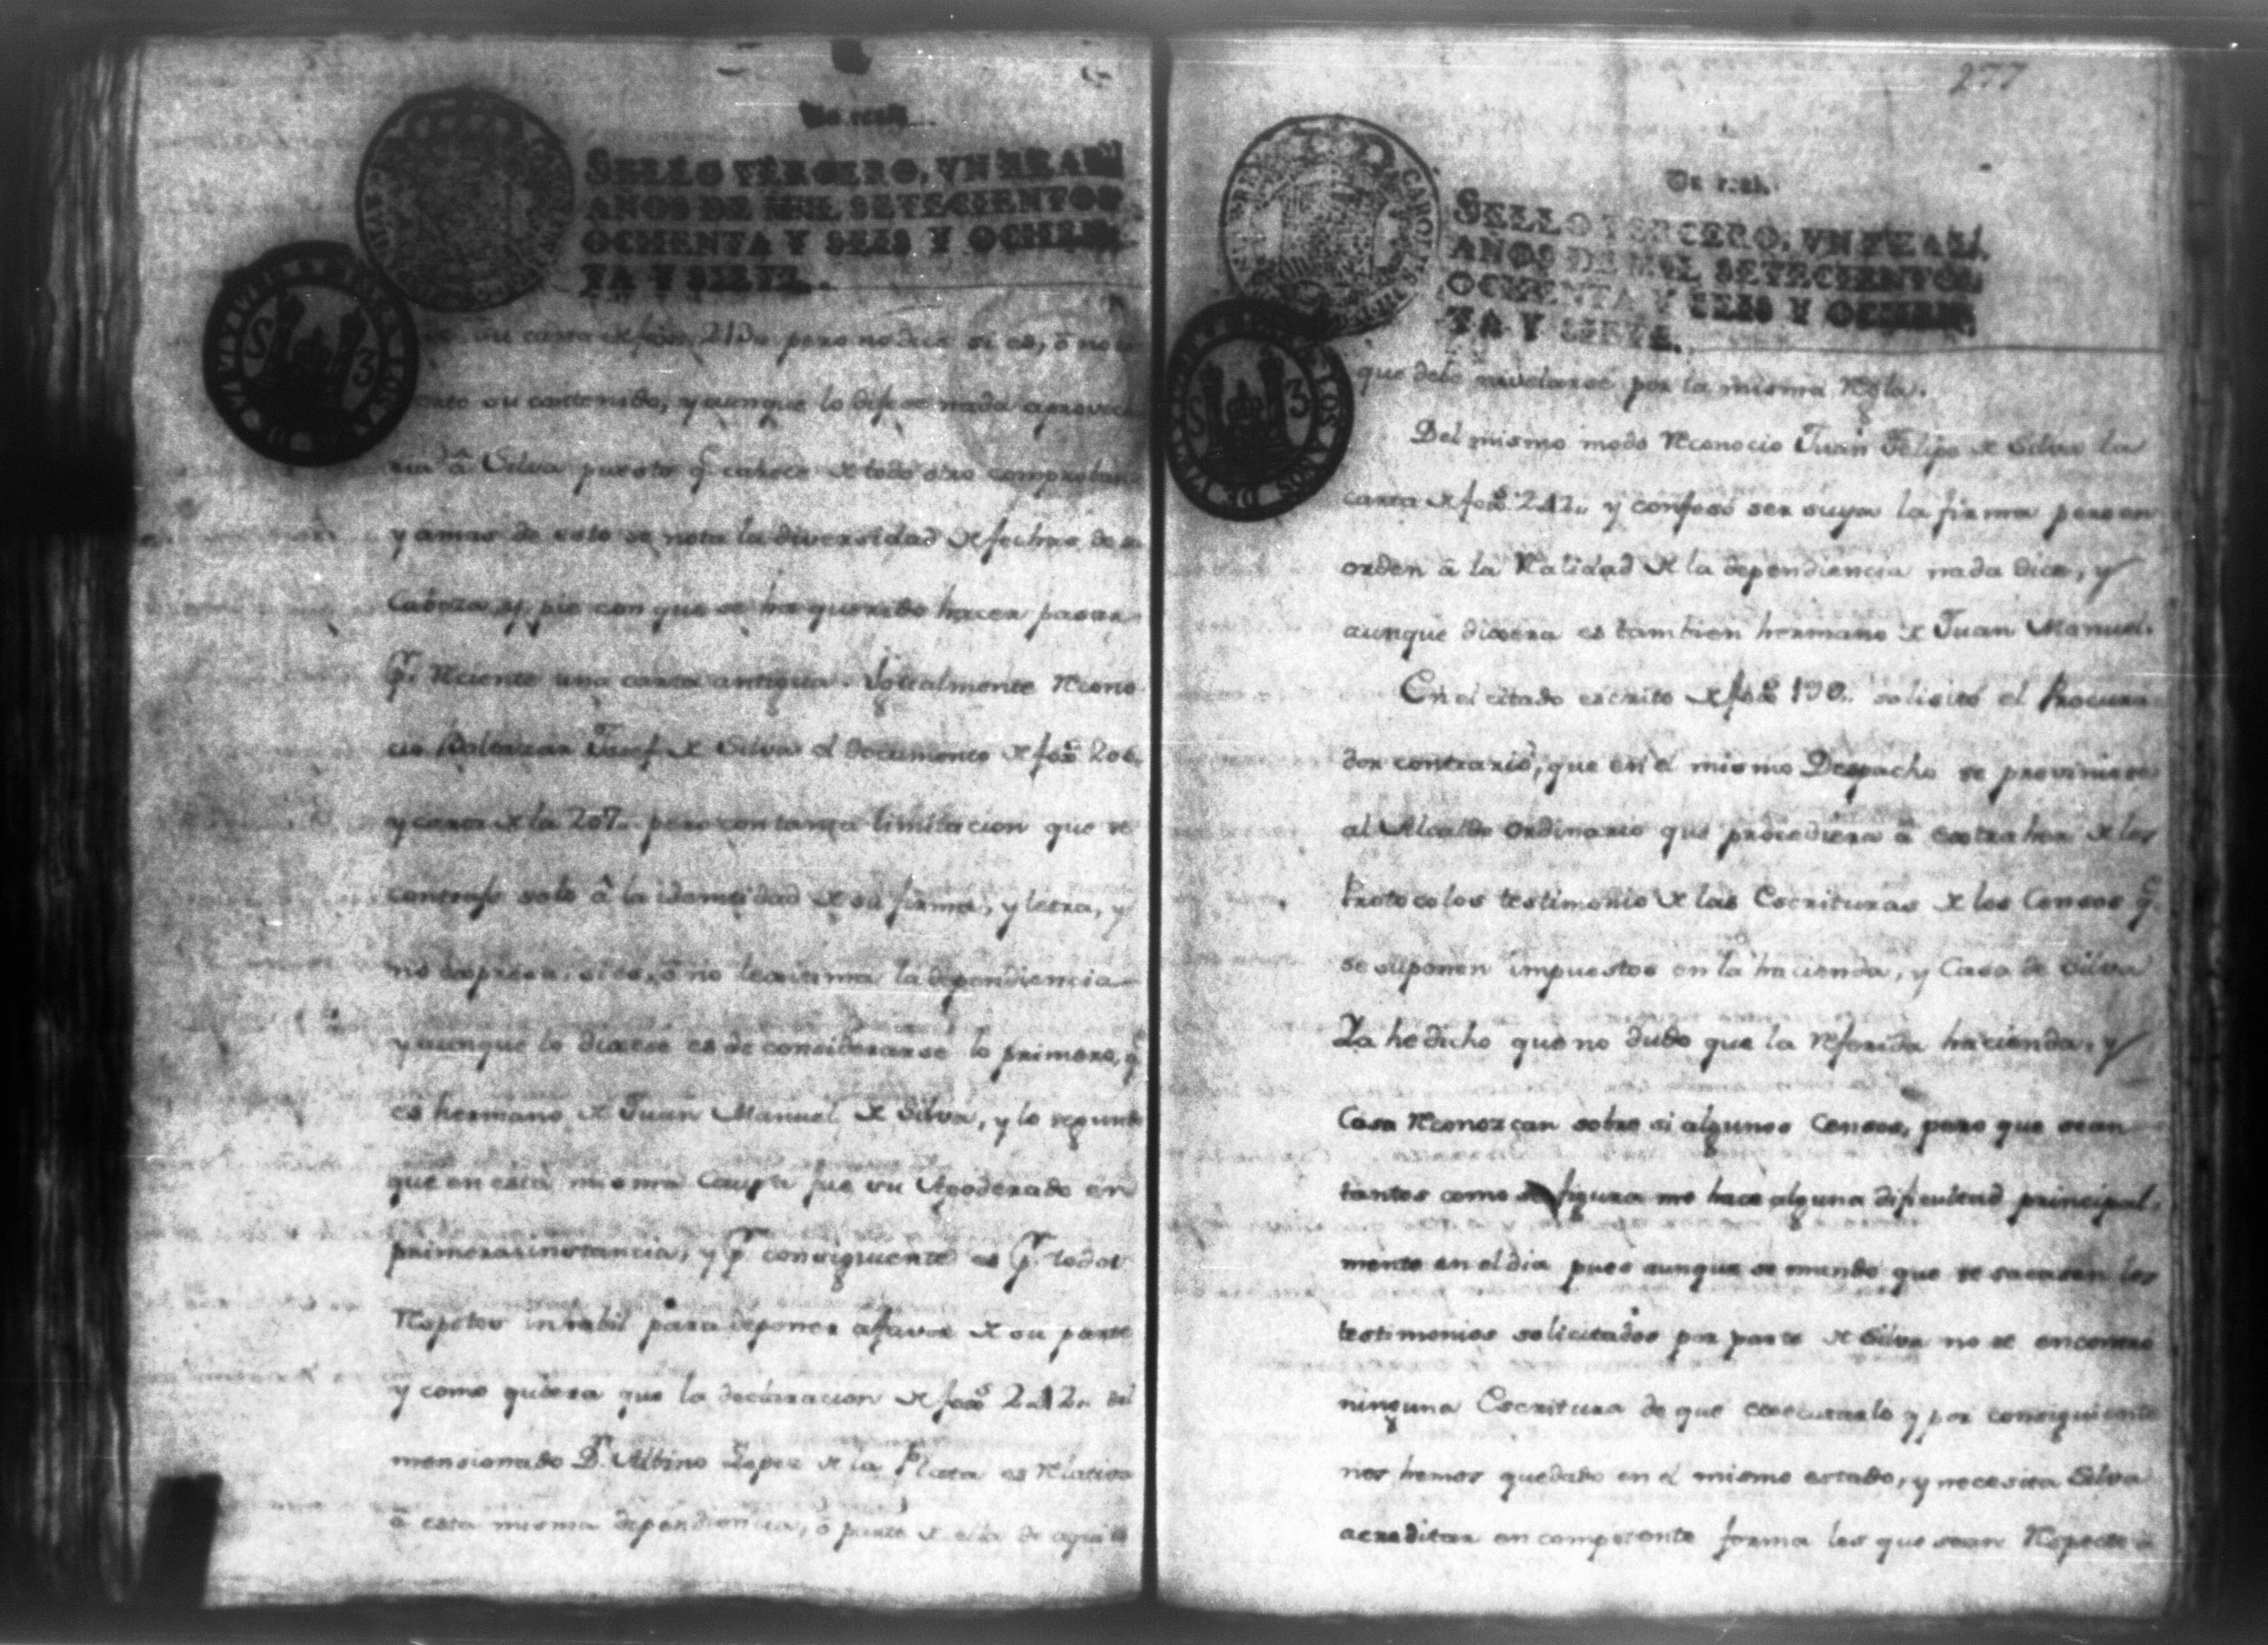 Un real.
SELLO TERCERO, VN REAL
AÑOS DE MIL SETECIENTOS
OCHENTA Y SEIS Y OCHEN-
TA Y SIETE.
su carta de foxas 213. pero no dice si es, ó no
su contenido, y aunque lo dijese nada aprovecha
ria â Silva puesto q̃ carece de todo otro comprobante
y amas de esto se nota la diversidad de fechas de
Cabeza, y pie con que se ha querido hacer pasar
pr. Reciente una carta antigua. Igualmente Recono
cio Baltazar Josef de Silva el documento de foxs 206.
y carta de la 207. pero con tanta limitacion que se
contrajo solo â la identidad de su firma, y letra, y
no expresa, si es, ô no lexitima la dependiencia
y aunque lo dixese es de considerarse lo primero, q̃
es hermano de Juan Manuel de Silva, y lo segundo
que en esta misma Causa fue su Apoderado en
primera instancia, y pr. consiguiente es pr. todos
Respetos inhabil para deponer afavor de su parte
y como quiera que la declaracion de foxs 212. del
mencionado Dn. Albino Lopez de la Plata es Relativa
â esta misma dependiencia, ô parte de ella de aqui es
277
Un real.
SELLO TERCERO, VN REAL
AÑOS DE MIL SETECIENTOS
OCHENTA Y SEIS Y OCHEN-
TA Y SIETE.
que debe nivelarse por la misma Regla.
Del mismo modo Reconocio Juan Felipe de Silva la
carta de foxs 212. y confesó ser suya la firma pero en
orden â la Realidad de la dependiencia nada dice, y
aunque dixera es tambien hermano de Juan Manuel.
En el citado escrito de foxs 190. solicitó el Procura
dor contrario, que en el mismo Despacho se previniese
al Alcalde ordinario que procediera â extraher de los
Protocolos testimonio de las Escrituras de los Censos q̃.
se suponen impuestos en la hacienda, y Casa de Silva
Ya he dicho que no dudo que la Referida hacienda, y
Casa Reconozcan sobre si algunos Censos, pero que sean
tantos como se figura me hace alguna dificultad principal-
mente en el dia pues aunque se mandó que se sacasen los
testimonios solicitados por parte de Silva no se encontró
ninguna Escritura de que executarlo y por consiguiente
nos hemos quedado en el mismo estado, y necesita Silva
acreditar en competente forma los que sean Respecto a